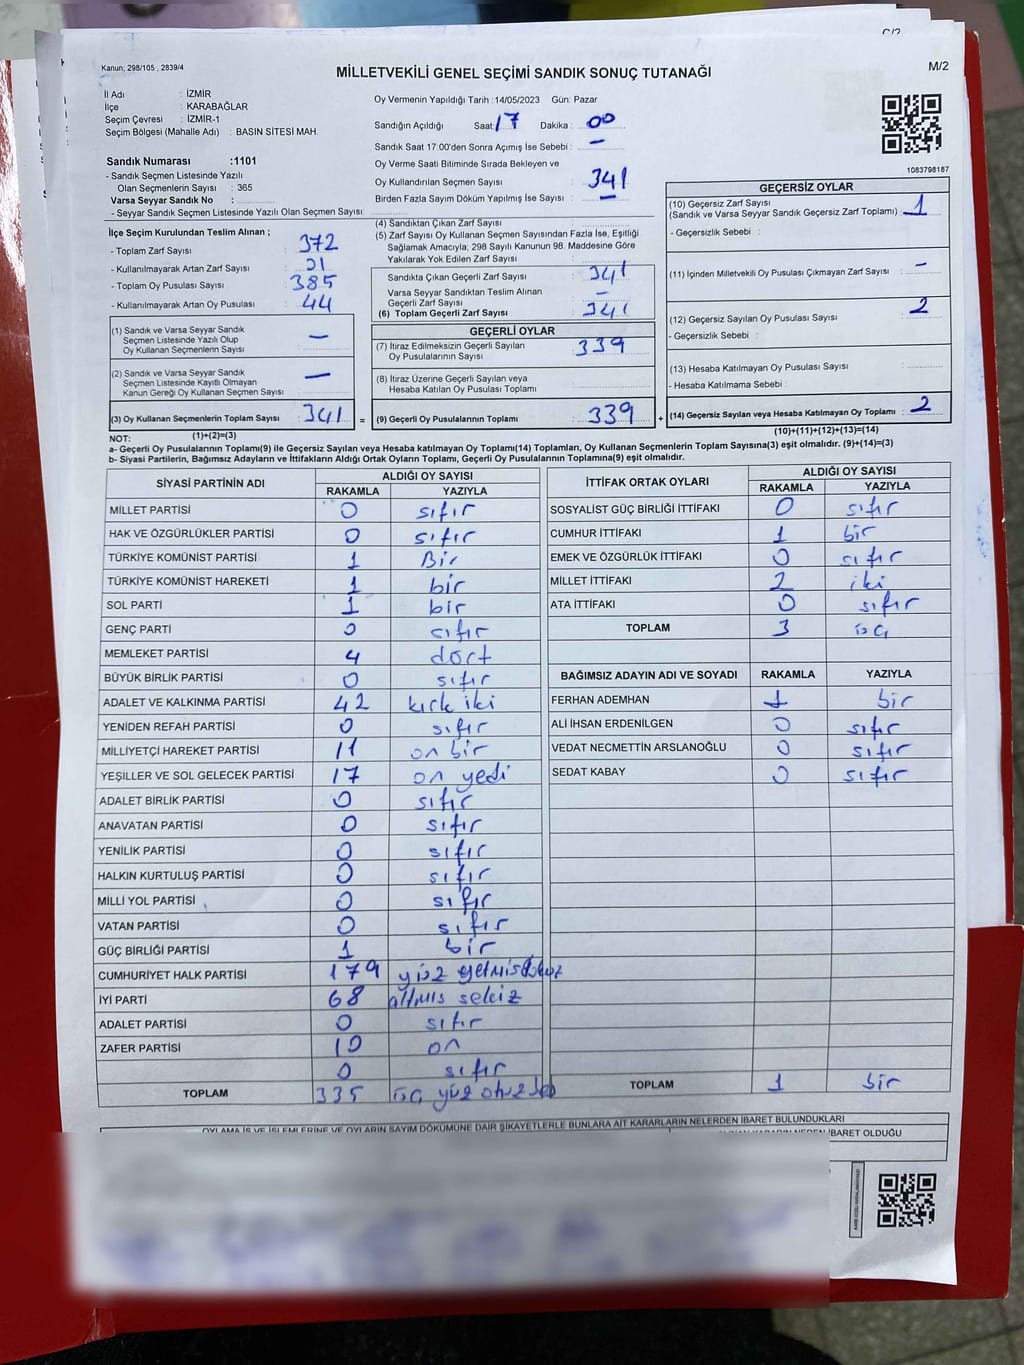 C/2
Kanun; 298/105 , 2839/4
M/2
MİLLETVEKİLİ GENEL SEÇİMİ SANDIK SONUÇ TUTANAĞI
İl Adı : İZMİR
İlçe : KARABAĞLAR
Seçim Çevresi : İZMİR-1
Seçim Bölgesi (Mahalle Adı) : BASIN SİTESİ MAH.
Sandık Numarası :1101
- Sandık Seçmen Listesinde Yazılı
Olan Seçmenlerin Sayısı : 365
Varsa Seyyar Sandık No :
- Seyyar Sandık Seçmen Listesinde Yazılı Olan Seçmen Sayısı:
Oy Vermenin Yapıldığı Tarih :14/05/2023 Gün: Pazar
Sandığın Açıldığı Saat: 17 Dakika : 00
Sandık Saat 17:00'den Sonra Açımış İse Sebebi : –
Oy Verme Saati Bitiminde Sırada Bekleyen ve
Oy Kullandırılan Seçmen Sayısı : 341
Birden Fazla Sayım Döküm Yapılmış İse Sayısı : –
1083798187
İlçe Seçim Kurulundan Teslim Alınan ;
- Toplam Zarf Sayısı : 372
- Kullanılmayarak Artan Zarf Sayısı : 31
- Toplam Oy Pusulası Sayısı : 385
- Kullanılmayarak Artan Oy Pusulası : 44
(1) Sandık ve Varsa Seyyar Sandık
Seçmen Listesinde Yazılı Olup
Oy Kullanan Seçmenlerin Sayısı : –
(2) Sandık ve Varsa Seyyar Sandık
Seçmen Listesinde Kayıtlı Olmayan
Kanun Gereği Oy Kullanan Seçmen Sayısı : –
(3) Oy Kullanan Seçmenlerin Toplam Sayısı : 341 =
(1)+(2)=(3)
(4) Sandıktan Çıkan Zarf Sayısı :
(5) Zarf Sayısı Oy Kullanan Seçmen Sayısından Fazla İse, Eşitliği
Sağlamak Amacıyla; 298 Sayılı Kanunun 98. Maddesine Göre
Yakılarak Yok Edilen Zarf Sayısı :
Sandıkta Çıkan Geçerli Zarf Sayısı : 341
Varsa Seyyar Sandıktan Teslim Alınan
Geçerli Zarf Sayısı : –
(6) Toplam Geçerli Zarf Sayısı : 341
GEÇERLİ OYLAR
(7) İtiraz Edilmeksizin Geçerli Sayılan
Oy Pusulalarının Sayısı : 339
(8) İtiraz Üzerine Geçerli Sayılan veya
Hesaba Katılan Oy Pusulası Toplamı :
(9) Geçerli Oy Pusulalarının Toplamı : 339 +
GEÇERSİZ OYLAR
(10) Geçersiz Zarf Sayısı
(Sandık ve Varsa Seyyar Sandık Geçersiz Zarf Toplamı) : 1
- Geçersizlik Sebebi :
(11) İçinden Milletvekili Oy Pusulası Çıkmayan Zarf Sayısı : –
(12) Geçersiz Sayılan Oy Pusulası Sayısı : 2
- Geçersizlik Sebebi :
(13) Hesaba Katılmayan Oy Pusulası Sayısı :
- Hesaba Katılmama Sebebi :
(14) Geçersiz Sayılan veya Hesaba Katılmayan Oy Toplamı : 2
(10)+(11)+(12)+(13)=(14)
NOT:
a- Geçerli Oy Pusulalarının Toplamı(9) ile Geçersiz Sayılan veya Hesaba katılmayan Oy Toplamı(14) Toplamları, Oy Kullanan Seçmenlerin Toplam Sayısına(3) eşit olmalıdır. (9)+(14)=(3)
b- Siyasi Partilerin, Bağımsız Adayların ve İttifakların Aldığı Ortak Oyların Toplamı, Geçerli Oy Pusulalarının Toplamına(9) eşit olmalıdır.
SİYASİ PARTİNİN ADI ALDIĞI OY SAYISI
RAKAMLA YAZIYLA
MİLLET PARTİSİ 0 sıfır
HAK VE ÖZGÜRLÜKLER PARTİSİ 0 sıfır
TÜRKİYE KOMÜNİST PARTİSİ 1 Bir
TÜRKİYE KOMÜNİST HAREKETİ 1 bir
SOL PARTİ 1 bir
GENÇ PARTİ 0 sıfır
MEMLEKET PARTİSİ 4 dört
BÜYÜK BİRLİK PARTİSİ 0 sıfır
ADALET VE KALKINMA PARTİSİ 42 kırk iki
YENİDEN REFAH PARTİSİ 0 sıfır
MİLLİYETÇİ HAREKET PARTİSİ 11 on bir
YEŞİLLER VE SOL GELECEK PARTİSİ 17 on yedi
ADALET BİRLİK PARTİSİ 0 sıfır
ANAVATAN PARTİSİ 0 sıfır
YENİLİK PARTİSİ 0 sıfır
HALKIN KURTULUŞ PARTİSİ 0 sıfır
MİLLİ YOL PARTİSİ 0 sıfır
VATAN PARTİSİ 0 sıfır
GÜÇ BİRLİĞİ PARTİSİ 1 bir
CUMHURİYET HALK PARTİSİ 179 yüz yetmiş dokuz
İYİ PARTİ 68 altmış sekiz
ADALET PARTİSİ 0 sıfır
ZAFER PARTİSİ 10 on
0 sıfır
TOPLAM 335 üç yüz otuz beş
İTTİFAK ORTAK OYLARI ALDIĞI OY SAYISI
RAKAMLA YAZIYLA
SOSYALİST GÜÇ BİRLİĞİ İTTİFAKI 0 sıfır
CUMHUR İTTİFAKI 1 bir
EMEK VE ÖZGÜRLÜK İTTİFAKI 0 sıfır
MİLLET İTTİFAKI 2 iki
ATA İTTİFAKI 0 sıfır
TOPLAM 3 üç
BAĞIMSIZ ADAYIN ADI VE SOYADI RAKAMLA YAZIYLA
FERHAN ADEMHAN 1 bir
ALİ İHSAN ERDENİLGEN 0 sıfır
VEDAT NECMETTİN ARSLANOĞLU 0 sıfır
SEDAT KABAY 0 sıfır
TOPLAM 1 bir
OYLAMA İŞ VE İŞLEMLERİNE VE OYLARIN SAYIM DÖKÜMÜNE DAİR ŞİKAYETLERLE BUNLARA AİT KARARLARIN NELERDEN İBARET BULUNDUKLARI
İBARET OLDUĞU